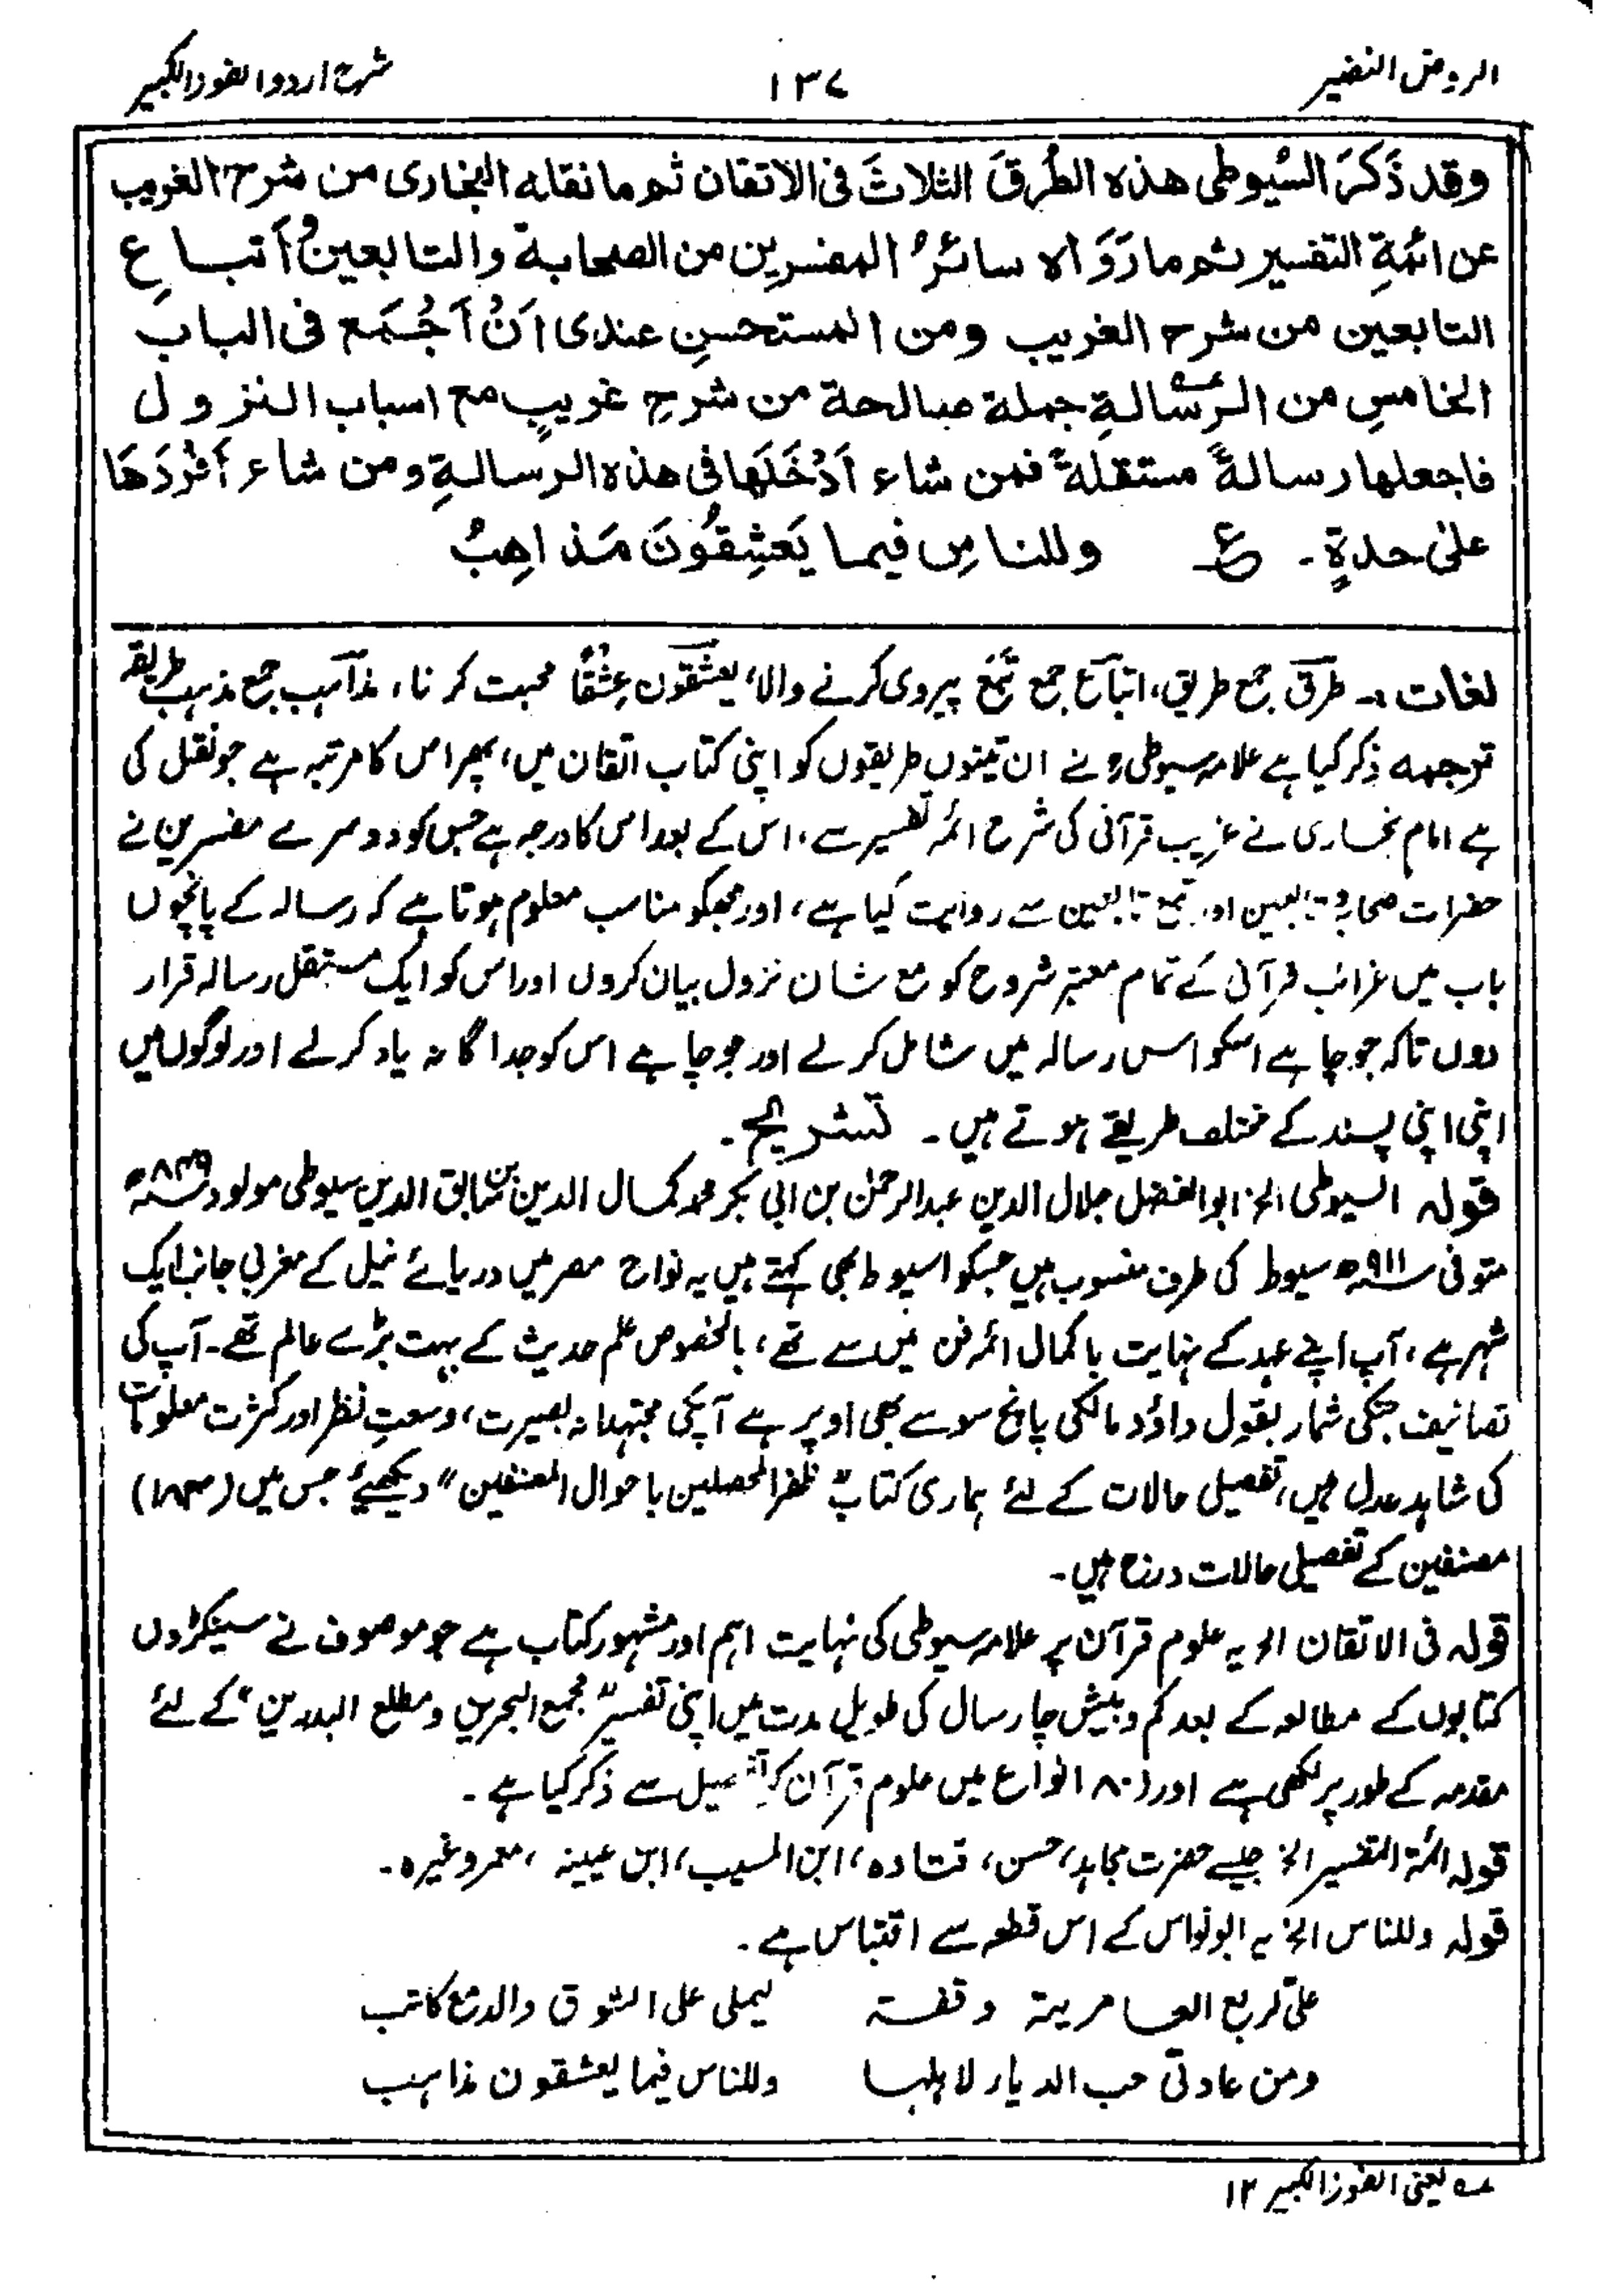 الروض النضیر ۱۳۷ شرح اردو الفوز الکبیر
وقد ذَكَرَ السُّيوطی هذه الطُرقَ الثلاثَ فی الاتقان ثم ما نقله البخاری من شرح الغریب
عن ائمّةِ التفسیر ثم ما رَوَاه سائرُ المفسرین من الصحابة والتابعین وُاَتباعِ
التابعین من شرح الغریب ومن المستحسنِ عندی اَنْ اَجْمَعَ فی الباب
الخامسِ من الرسالةِ جملة صالحة من شرحِ غریبٍ مع اسباب النزول
فاجعلها رسالةً مستقلةً فمن شاء اَدْخَلَها فی هذه الرسالةِ ومن شاء اَفْرَدَهَا
علیٰ حدةٍ۔ ع وللناسِ فیما یَعشِقُونَ مَذاهِبُ
لغات :۔ طرق جمع طریق، اتباع جمع تَبَع پیروی کرنے والا، یعشقون عِشْقًا محبت کرنا، مذاہب جمع مذہب طریقہ
ترجمہ ذکر کیا ہے علامہ سیوطیؒ نے ان تینوں طریقوں کو اپنی کتاب اتقان میں، پھر اس کا مرتبہ ہے جو نقل کی
ہے امام بخاری نے غریب قرآنی کی شرح ائمہ تفسیر سے، اس کے بعد اس کا درجہ ہے جس کو دوسرے مفسرین نے
حضرات صحابہ و تابعین اور تبع تابعین سے روایت کیا ہے، اور مجھکو مناسب معلوم ہوتا ہے کہ رسالہ کے پانچوں
باب میں غرائب قرآنی کے تمام معتبر شروح کو مع شان نزول بیان کروں اور اس کو ایک مستقل رسالہ قرار
دوں تاکہ جو چاہے اسکو اس رسالہ میں شامل کرلے اور جو چاہے اس کو جداگانہ یاد کرلے اور لوگوں میں
اپنی اپنی پسند کے مختلف طریقے ہوتے ہیں۔ تشریح۔
قولہ السیوطی الخ ابوالفضل جلال الدین عبدالرحمٰن بن ابی بکر محمد کمال الدین بن سابق الدین سیوطی مولود ۸۴۹ھ
متوفی ۹۱۱ھ سیوط کی طرف منسوب ہیں جسکو اسیوط بھی کہتے ہیں یہ نواح مصر میں دریائے نیل کے مغربی جانب ایک
شہر ہے، آپ اپنے عہد کے نہایت باکمال ائمہ فن میں سے تھے، بالخصوص علم حدیث کے بہت بڑے عالم تھے۔ آپ کی
تصانیف جنکی شمار بقول داؤد مالکی پانچ سو سے بھی اوپر ہے آپکی مجتہدانہ بصیرت، وسعتِ نظر اور کثرت معلومات
کی شاہد عدل ہیں، تفصیلی حالات کے لئے ہماری کتاب "ظفر المحصلین باحوال المصنفین" دیکھئے جس میں (۱۸۳)
مصنفین کے تفصیلی حالات درج ہیں۔
قولہ فی الاتقان الخ یہ علوم قرآن پر علامہ سیوطی کی نہایت اہم اور مشہور کتاب ہے جو موصوف نے سینکڑوں
کتابوں کے مطالعہ کے بعد کم و بیش چار سال کی طویل مدت میں اپنی تفسیر "مجمع البحرین ومطلع البدرین" کے لئے
مقدمہ کے طور پر لکھی ہے اور (۸۰) انواع میں علوم قرآن کو تفصیل سے ذکر کیا ہے۔
قولہ ائمۃ التفسیر الخ جیسے حضرت مجاہد، حسن، قتادہ، ابن المسیب، ابن عیینہ، معمر وغیرہ۔
قولہ وللناس الخ یہ ابو نواس کے اس قطعہ سے اقتباس ہے۔
علیّ لربع العامریۃ وقفۃ لیملی علی الشوق والدمع کاتب
ومن عادتی حب الدیار لاہلہا وللناس فیما یعشقون مذاہب
عہ یعنی الفوز الکبیر ۱۲